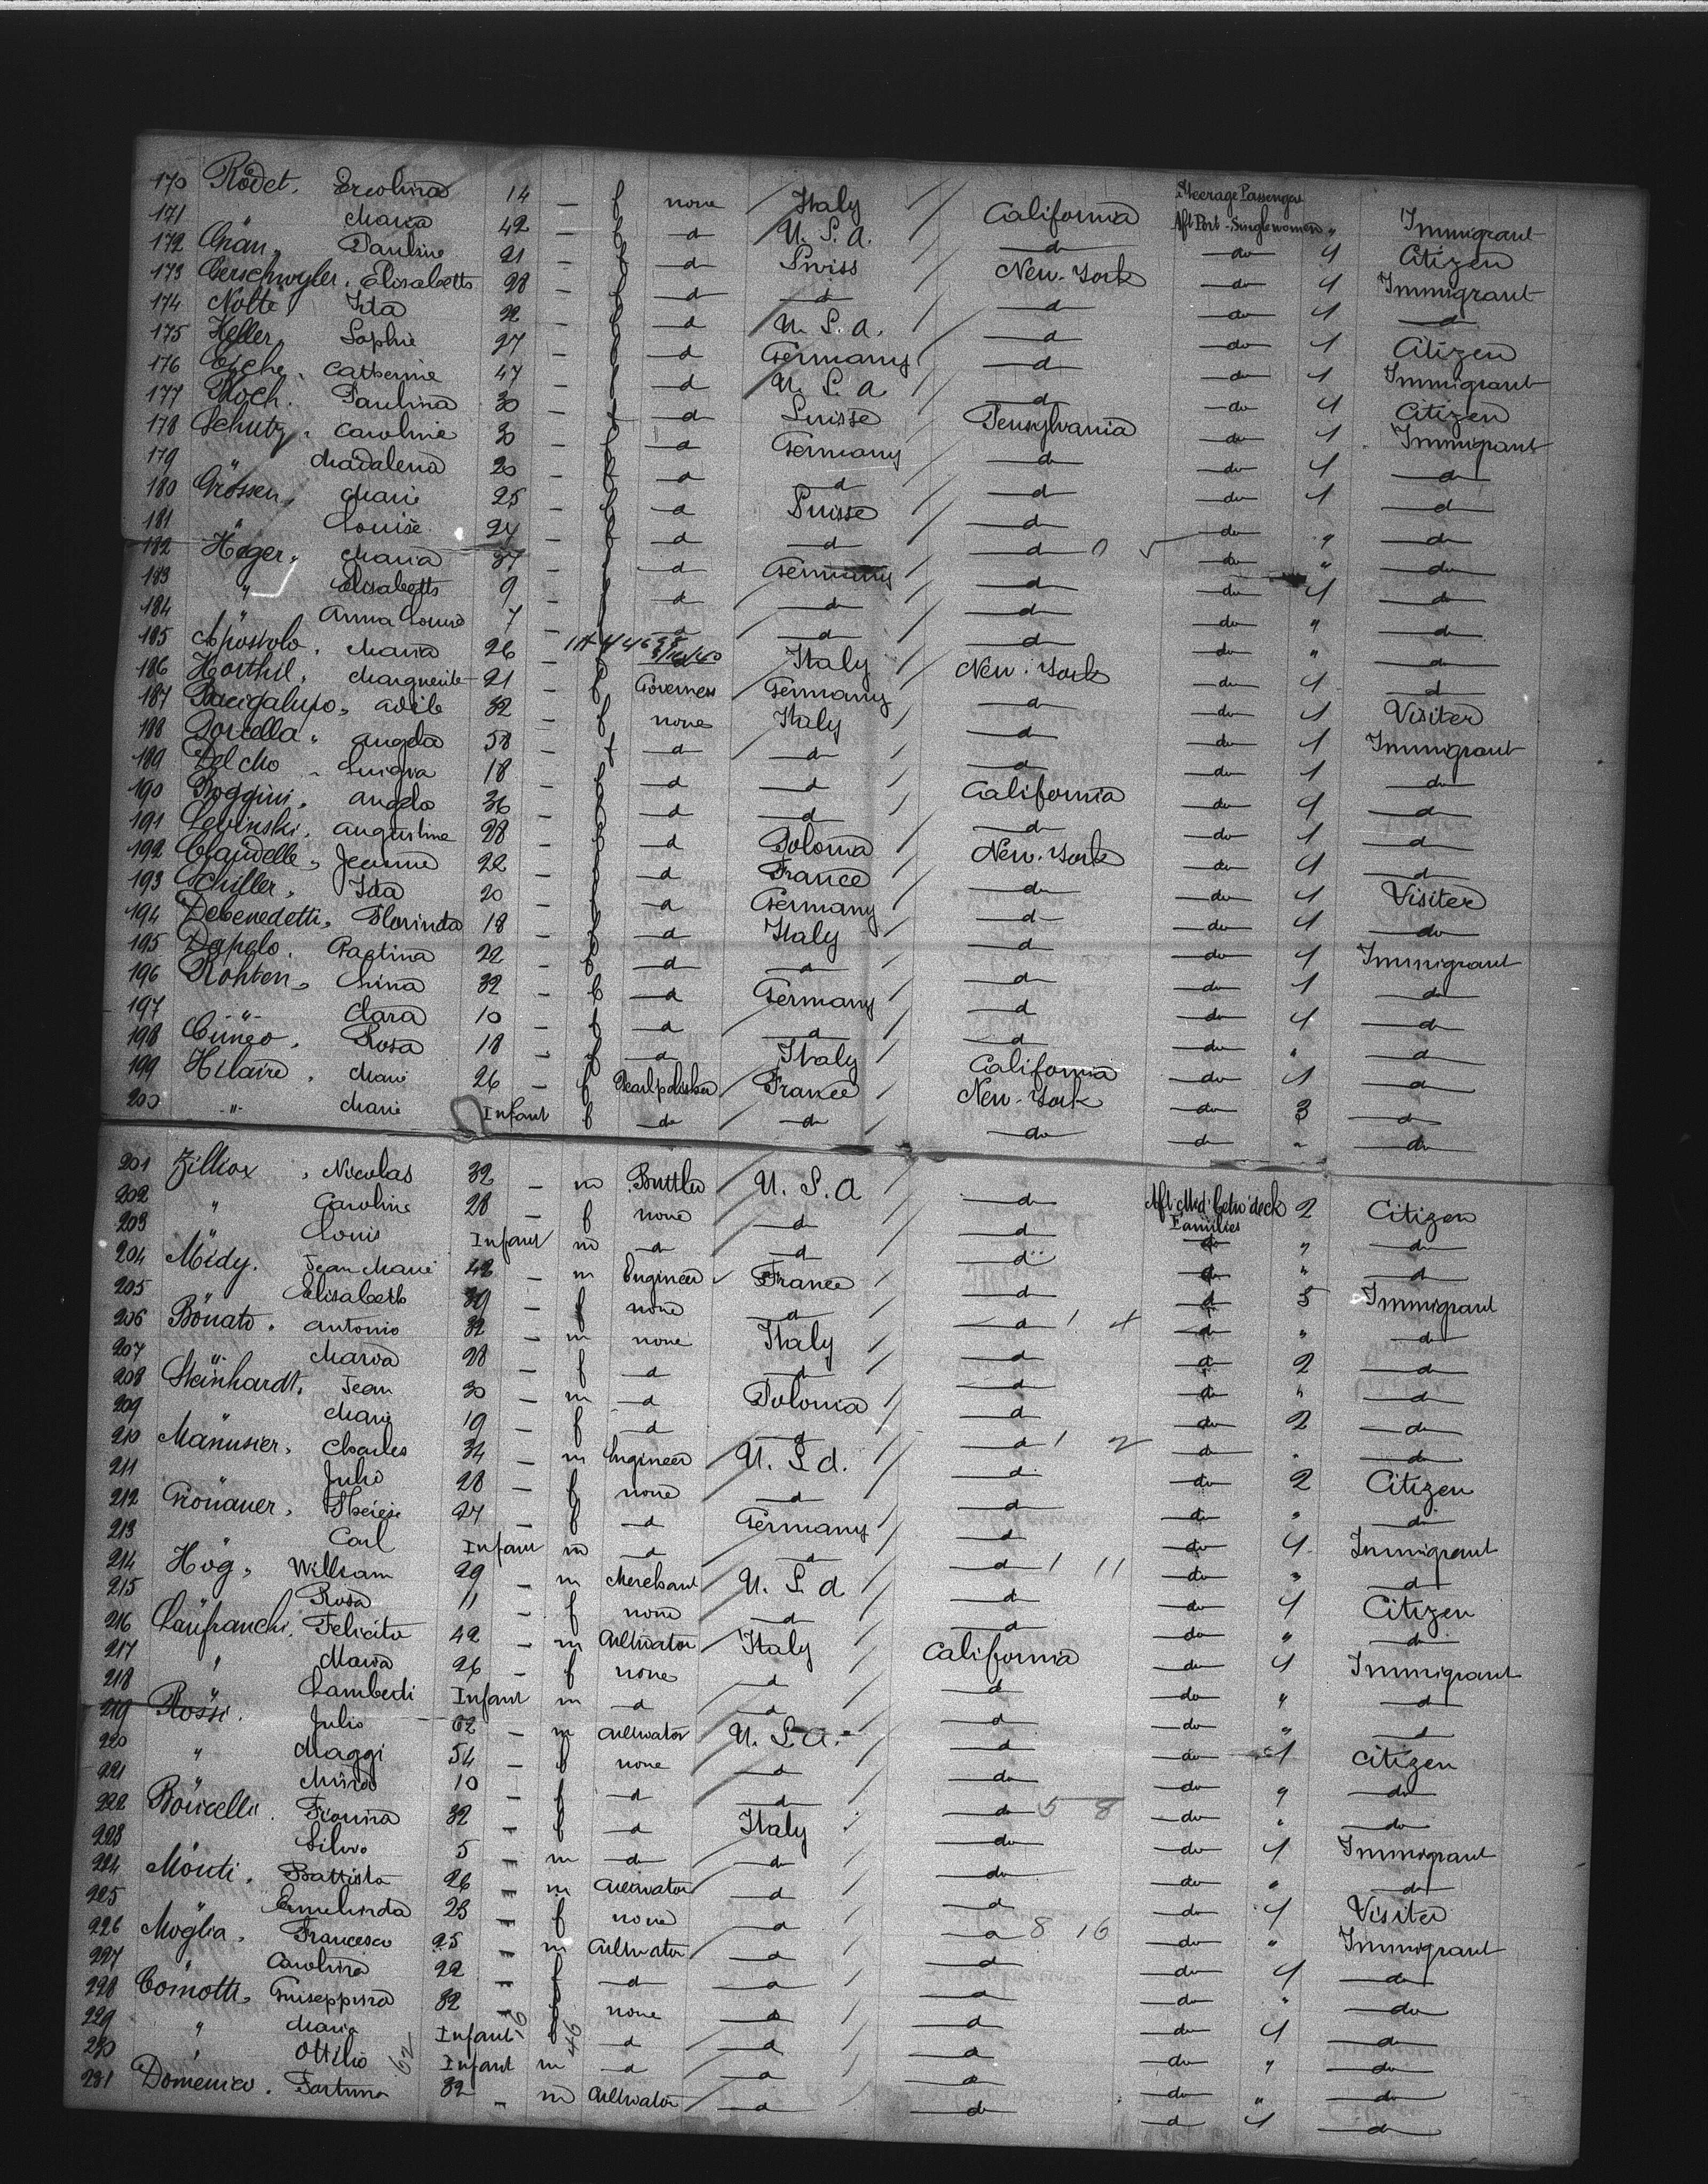 170 Rodet, Ercolina 14 – f none Italy California Steerage Passengers Aft Port - Single women " Immigrant
171 " Maria 42 – f d U. S. a. d do 1 Citizen
172 Grän, Pauline 21 – f d Swiss New-York do 1 Immigrant
173 Gerschwyler, Elisabeth 28 – f d d d do 1 d
174 Nolte Ida 22 – f d U. S. a. d do 1 Citizen
175 Heller, Sophie 27 – f d Germany d do 1 Immigrant
176 Esche, Catherine 47 – f d U. S. a d do 1 Citizen
177 Roch. Paulina 30 – f d Suisse Pensylvania do 1 Immigrant
178 Schutz, Caroline 30 – f d Germany d do 1 d
179 " Madalena 20 – f d d d do 1 d
180 Grossen, Marie 25 – f d Suisse d do " d
181 " Louise 24 – f d d d do " d
182 Hoger, Maria 37 – f d Germany d do 1 d
183 " Elisabeth 9 – f d d d do " d
184 " Anna Louise 7 – f d d d do " d
185 Apostolo, Maria 26 – f Italy New-York do 1 d
186 Marguerite 21 – f Governess Germany d do 1 Visiter
187 Bacigalupo, Adile 32 – f none Italy d do 1 Immigrant
188 Porcella, Angela 58 – f d d d do 1 do
189 Delcho, Luigia 18 – f d d California do 1 d
190 Roggini, Angela 36 – f d d d do 1 d
191 Levinski, Augustine 28 – f d Polonia New-York do 1 d
192 Claudelle, Jeanne 22 – f d France do do 1 Visiter
193 Schiller, Ida 20 – f d Germany d do 1 do
194 Debenedetti, Florinda 18 – f d Italy d do 1 Immigrant
195 22 – f d d d do 1 do
196 Rohten, Lina 32 – f d Germany d do 1 d
197 " Clara 10 – f d d d do " d
198 Cuneo, Rosa 18 – f d Italy California do 1 d
199 Hilaire, Marie 26 – f Pearlpolisher France New-York do 3 d
200 " Marie Infant f do do do do " do
201 Zilliox, Nicolas 32 – m Buttler U. S. a d Aft Mid betw deck Families 2 Citizen
202 " Caroline 28 – f none d d do " do
203 " Louis Infant m d d d do " d
204 Midy. Jean Marie 42 – m Engineer France d d 5 Immigrant
205 " Elisabeth 39 – f none d d 1 4 d " do
206 Bonato, Antonio 32 – m none Italy d d 2 d
207 " Maria 28 – f d d d do " d
208 Steinhardt, Jean 30 – m d Polonia d do 2 do
209 " Marie 19 – f d d d 1 2 do " do
210 Manusier, Charles 34 – m Engineer U. S. a. d do 2 Citizen
211 " Julie 28 – f none d d do " do
212 Gronauer, Therese 27 – f d Germany d do 1 Immigrant
213 " Carl Infant m d d d 1 11 do " d
214 Hog, William 29 – m Merchant U. S. a d do 1 Citizen
215 " Rosa 11 – f none d d do " do
216 Laufranchi, Felicito 42 – m Cultivator Italy California do 1 Immigrant
217 " Maria 26 – f none d d do " d
218 " Lamberti Infant m d d d do " d
219 Rossi. Julio 62 – m Cultivator U. S. a. d do 1 Citizen
220 " Maggi 54 – f none d do do " do
221 " 10 – f d d do 5 8 do " do
222 Fiorina 32 – f d Italy do do 1 Immigrant
223 " Silvio 5 – m do do do do " do
224 Monti, Battista 26 – m Cultivator d d do 1 Visiter
225 " Ermelinda 23 – f none d d 8 16 do " Immigrant
226 Moglia, Francesco 25 – m Cultivator d d do 1 do
227 " Carolina 22 – f d d d do " do
228 Comotti, Guiseppina 32 – f none d d do 1 do
229 " Maria Infant f d d d do " do
230 " Ottilio Infant m d d d do " do
231 Domenico, Fortuna 32 – m Cultivator d d d 1 do
62 16 46